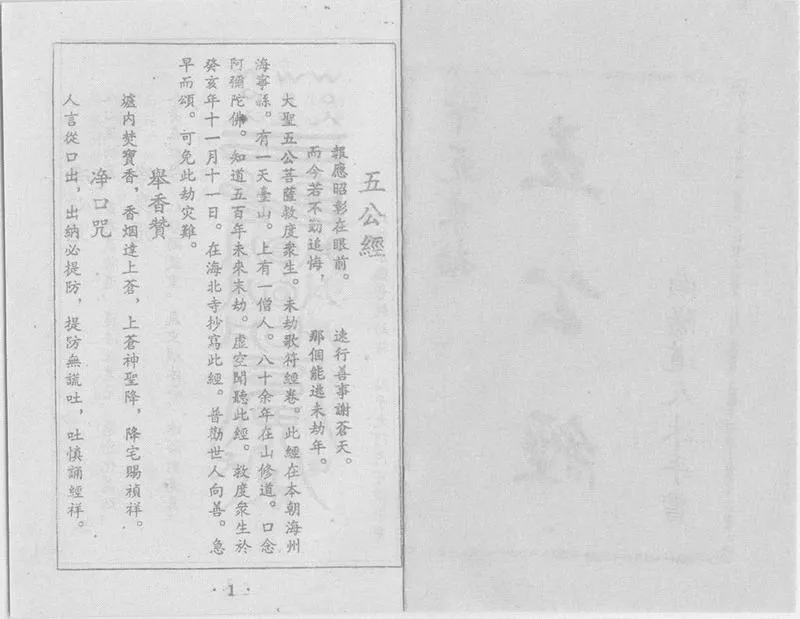 五公經
報應昭彰在眼前。 速行善事謝蒼天。
而今若不勤追悔， 那個能逃末劫年。
大聖五公菩薩救度衆生。末劫歌符經卷。此經在本朝海州
海寧縣。有一天臺山。上有一僧人。八十余年在山修道。口念
阿彌陀佛。知道五百年未來末劫。虛空聞聽此經。救度衆生於
癸亥年十一月十一日。在海北寺抄寫此經。普勸世人向善。急
早而頌。可免此劫灾難。
舉香贊
爐内焚寶香，香烟達上蒼，上蒼神聖降，降宅賜禎祥。
净口咒
人言從口出，出納必提防，提防無謊吐，吐慎誦經祥。
·1·
五公經